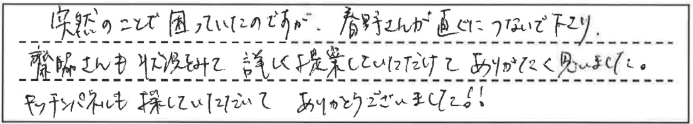 突然のことで困っていたのですが、春野さんが直ぐにつないで下さり、
齋脇さんも状況をみて 詳しく提案していただけて ありがたく思いました。
キッチンパネルも探していただいて ありがとうございました!!